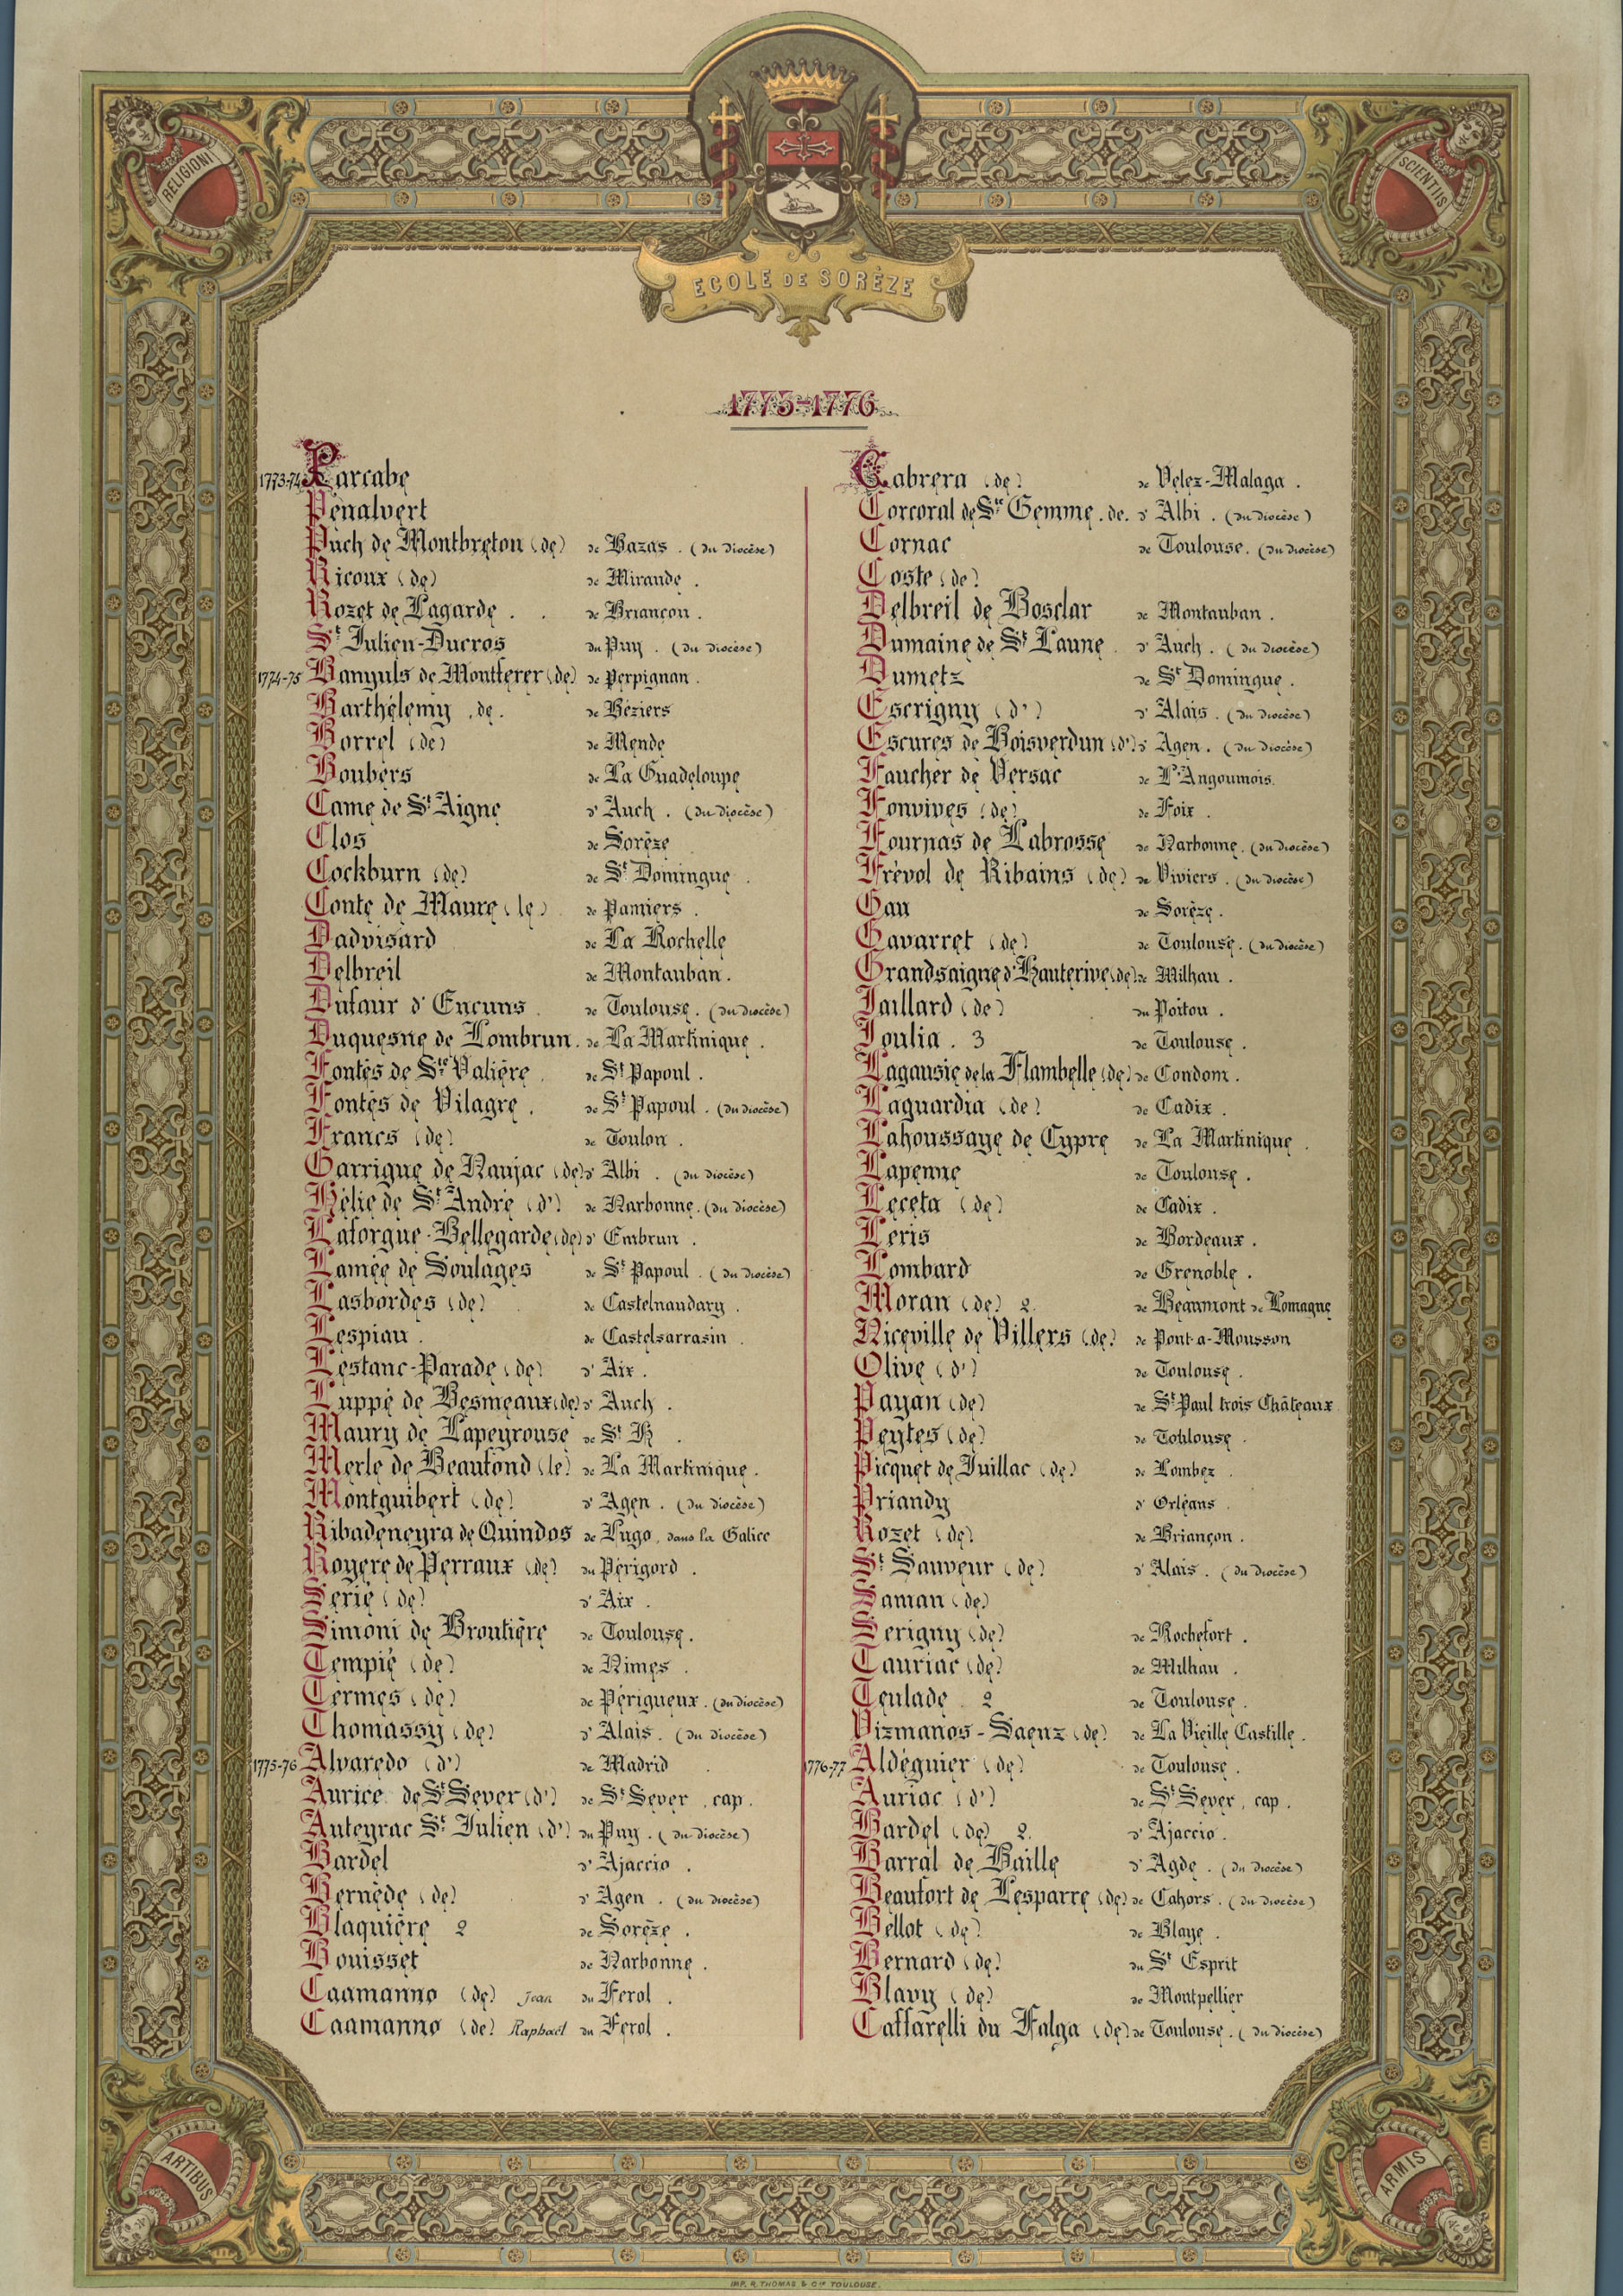 RELIGIONI
SCIENTIIS
ECOLE DE SORÈZE
1775-1776
1773-74 Parcabe
Penalvert
Puch de Montbreton (de) de Bazas. (du diocèse)
Ricoux (de) de Mirande.
Rozet de Lagarde. . de Briançon.
St Julien-Ducros du Puy. (du diocèse)
1774-75 Banyuls de Montferer (de) de Perpignan.
Barthélemy .de. de Béziers
Borrel (de) de Mende
Boubers de La Guadeloupe
Came de St Aigne d'Auch. (du diocèse)
Clos de Sorèze
Cockburn (de) de St Domingue.
Conte de Maure (le) de Pamiers.
Dadvisard de La Rochelle
Delbreil de Montauban.
Dufaur d'Encuns de Toulouse. (du diocèse)
Duquesne de Lombrun. de La Martinique.
Fontés de Ste Valière de St Papoul.
Fontés de Vilagre. de St Papoul. (du diocèse)
Francs (de) de Toulon.
Garrigue de Naujac (de) d'Albi. (du diocèse)
Hélie de St André (d') de Narbonne. (du diocèse)
Laforgue-Bellegarde (de) d'Embrun.
Lamée de Soulages de St Papoul. (du diocèse)
Lasbordes (de) de Castelnaudary.
Lespiau. de Castelsarrasin.
Lestanc-Parade (de) d'Aix.
Luppé de Besmeaux (de) d'Auch.
Maury de Lapeyrouse de St K.
Merle de Beaufond (le) de La Martinique.
Montguibert (de) d'Agen. (du diocèse)
Ribadeneyra de Quindos de Lugo, dans la Galice
Royere de Perraux (de) du Périgord.
Serié (de) d'Aix.
Simoni de Broutière de Toulouse.
Tempié (de) de Nimes.
Termes (de) de Périgueux. (du diocèse)
Thomassy (de) d'Alais. (du diocèse)
1775-76 Alvaredo (d') de Madrid.
Aurice de St Sever (d') de St Sever, cap.
Auteyrac St Julien (d') du Puy. (du diocèse)
Bardel d'Ajaccio.
Bernède (de) d'Agen. (du diocèse)
Blaquière 2 de Sorèze.
Bouisset de Narbonne.
Caamanno (de) Jean du Ferol.
Caamanno (de) Raphaël du Ferol.
Cabrera (de) de Velez-Malaga.
Corcoral de Ste Gemme .de. d'Albi. (du diocèse)
Cornac de Toulouse. (du diocèse)
Coste (de)
Delbreil de Bosclar de Montauban.
Dumaine de St Laune. d'Auch. (du diocèse)
Dumetz de St Domingue.
Escrigny (d') d'Alais. (du diocèse)
Escures de Boisverdun (d') d'Agen. (du diocèse)
Faucher de Versac de L'Angoumois.
Fonvives (de) de Foix.
Fournas de Labrosse de Narbonne. (du diocèse)
Frévol de Ribains (de) de Viviers. (du diocèse)
Gau de Sorèze.
Gavarret (de) de Toulouse. (du diocèse)
Grandsaigne d'Hauterive (de) de Milhau.
Jaillard (de) du Poitou.
Joulia. 3 de Toulouse.
Lagausie de la Flambelle (de) de Condom.
Laguardia (de) de Cadix.
Lahoussaye de Cypre de La Martinique.
Lapenne de Toulouse.
Leceta (de) de Cadix.
Leris de Bordeaux.
Lombard de Grenoble.
Moran (de) 2. de Beaumont de Lomagne
Niceville de Villers (de) de Pont-a-Mousson
Olive (d') de Toulouse.
Payan (de) de St Paul trois Châteaux
Peytes (de) de Toulouse.
Picquet de Juillac (de) de Lombez.
Priandy d'Orléans.
Rozet (de) de Briançon.
St Sauveur (de) d'Alais. (du diocèse)
Saman (de)
Serigny (de) de Rochefort.
Tauriac (de) de Milhau.
Teulade 2 de Toulouse.
Vizmanos-Saenz (de) de La Vieille Castille.
1776-77 Aldéguier (de) de Toulouse.
Auriac (d') de St Sever, cap.
Bardel (de) 2. d'Ajaccio.
Barral de Baille d'Agde. (du diocèse)
Beaufort de Lesparre (de) de Cahors. (du diocèse)
Bellot (de) de Blaye.
Bernard (de) du St Esprit
Blavy (de) de Montpellier
Caffarelli du Falga (de) de Toulouse. (du diocèse)
ARTIBUS
ARMIS
IMP. R. THOMAS & Cie TOULOUSE.